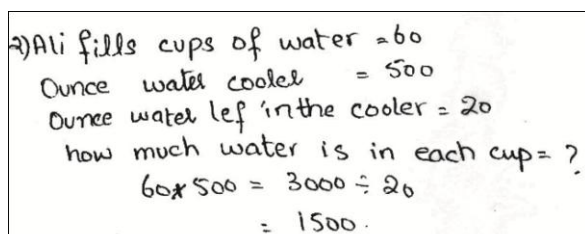 2) Ali fills cups of water = 60
Ounce water cooler = 500
Ounce water lef in the cooler = 20
how much water is in each cup = ?
60 x 500 = 3000 ÷ 20
= 1500.